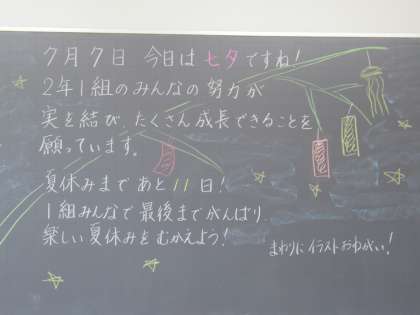 7月7日 今日は七夕ですね!
2年1組のみんなの努力が
実を結び、たくさん成長できることを
願っています。
夏休みまであと11日!
1組みんなで最後までがんばり
楽しい夏休みをむかえよう!
まわりにイラストおねがい!